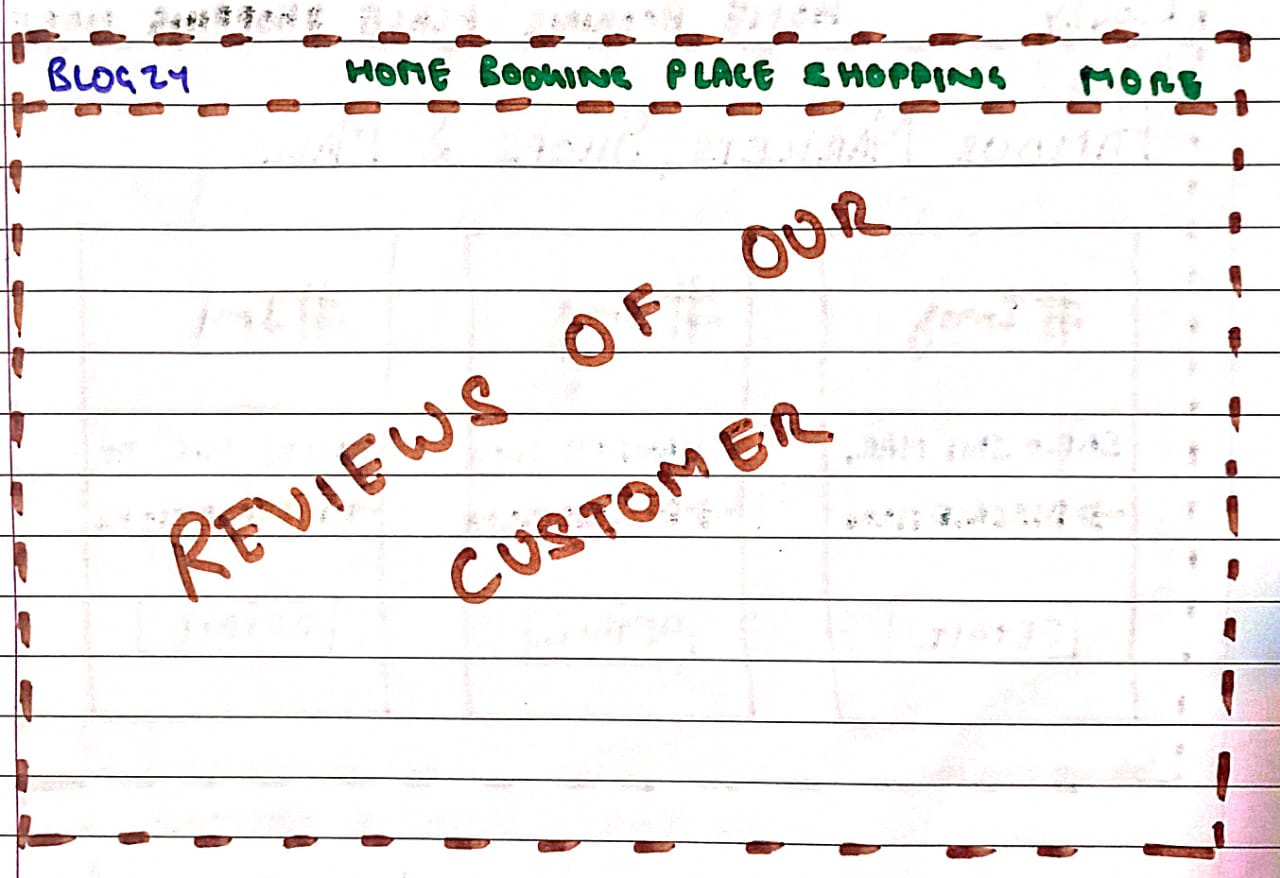 BLOGZY HOME BOOKING PLACE SHOPPING MORE
REVIEWS OF OUR
CUSTOMER